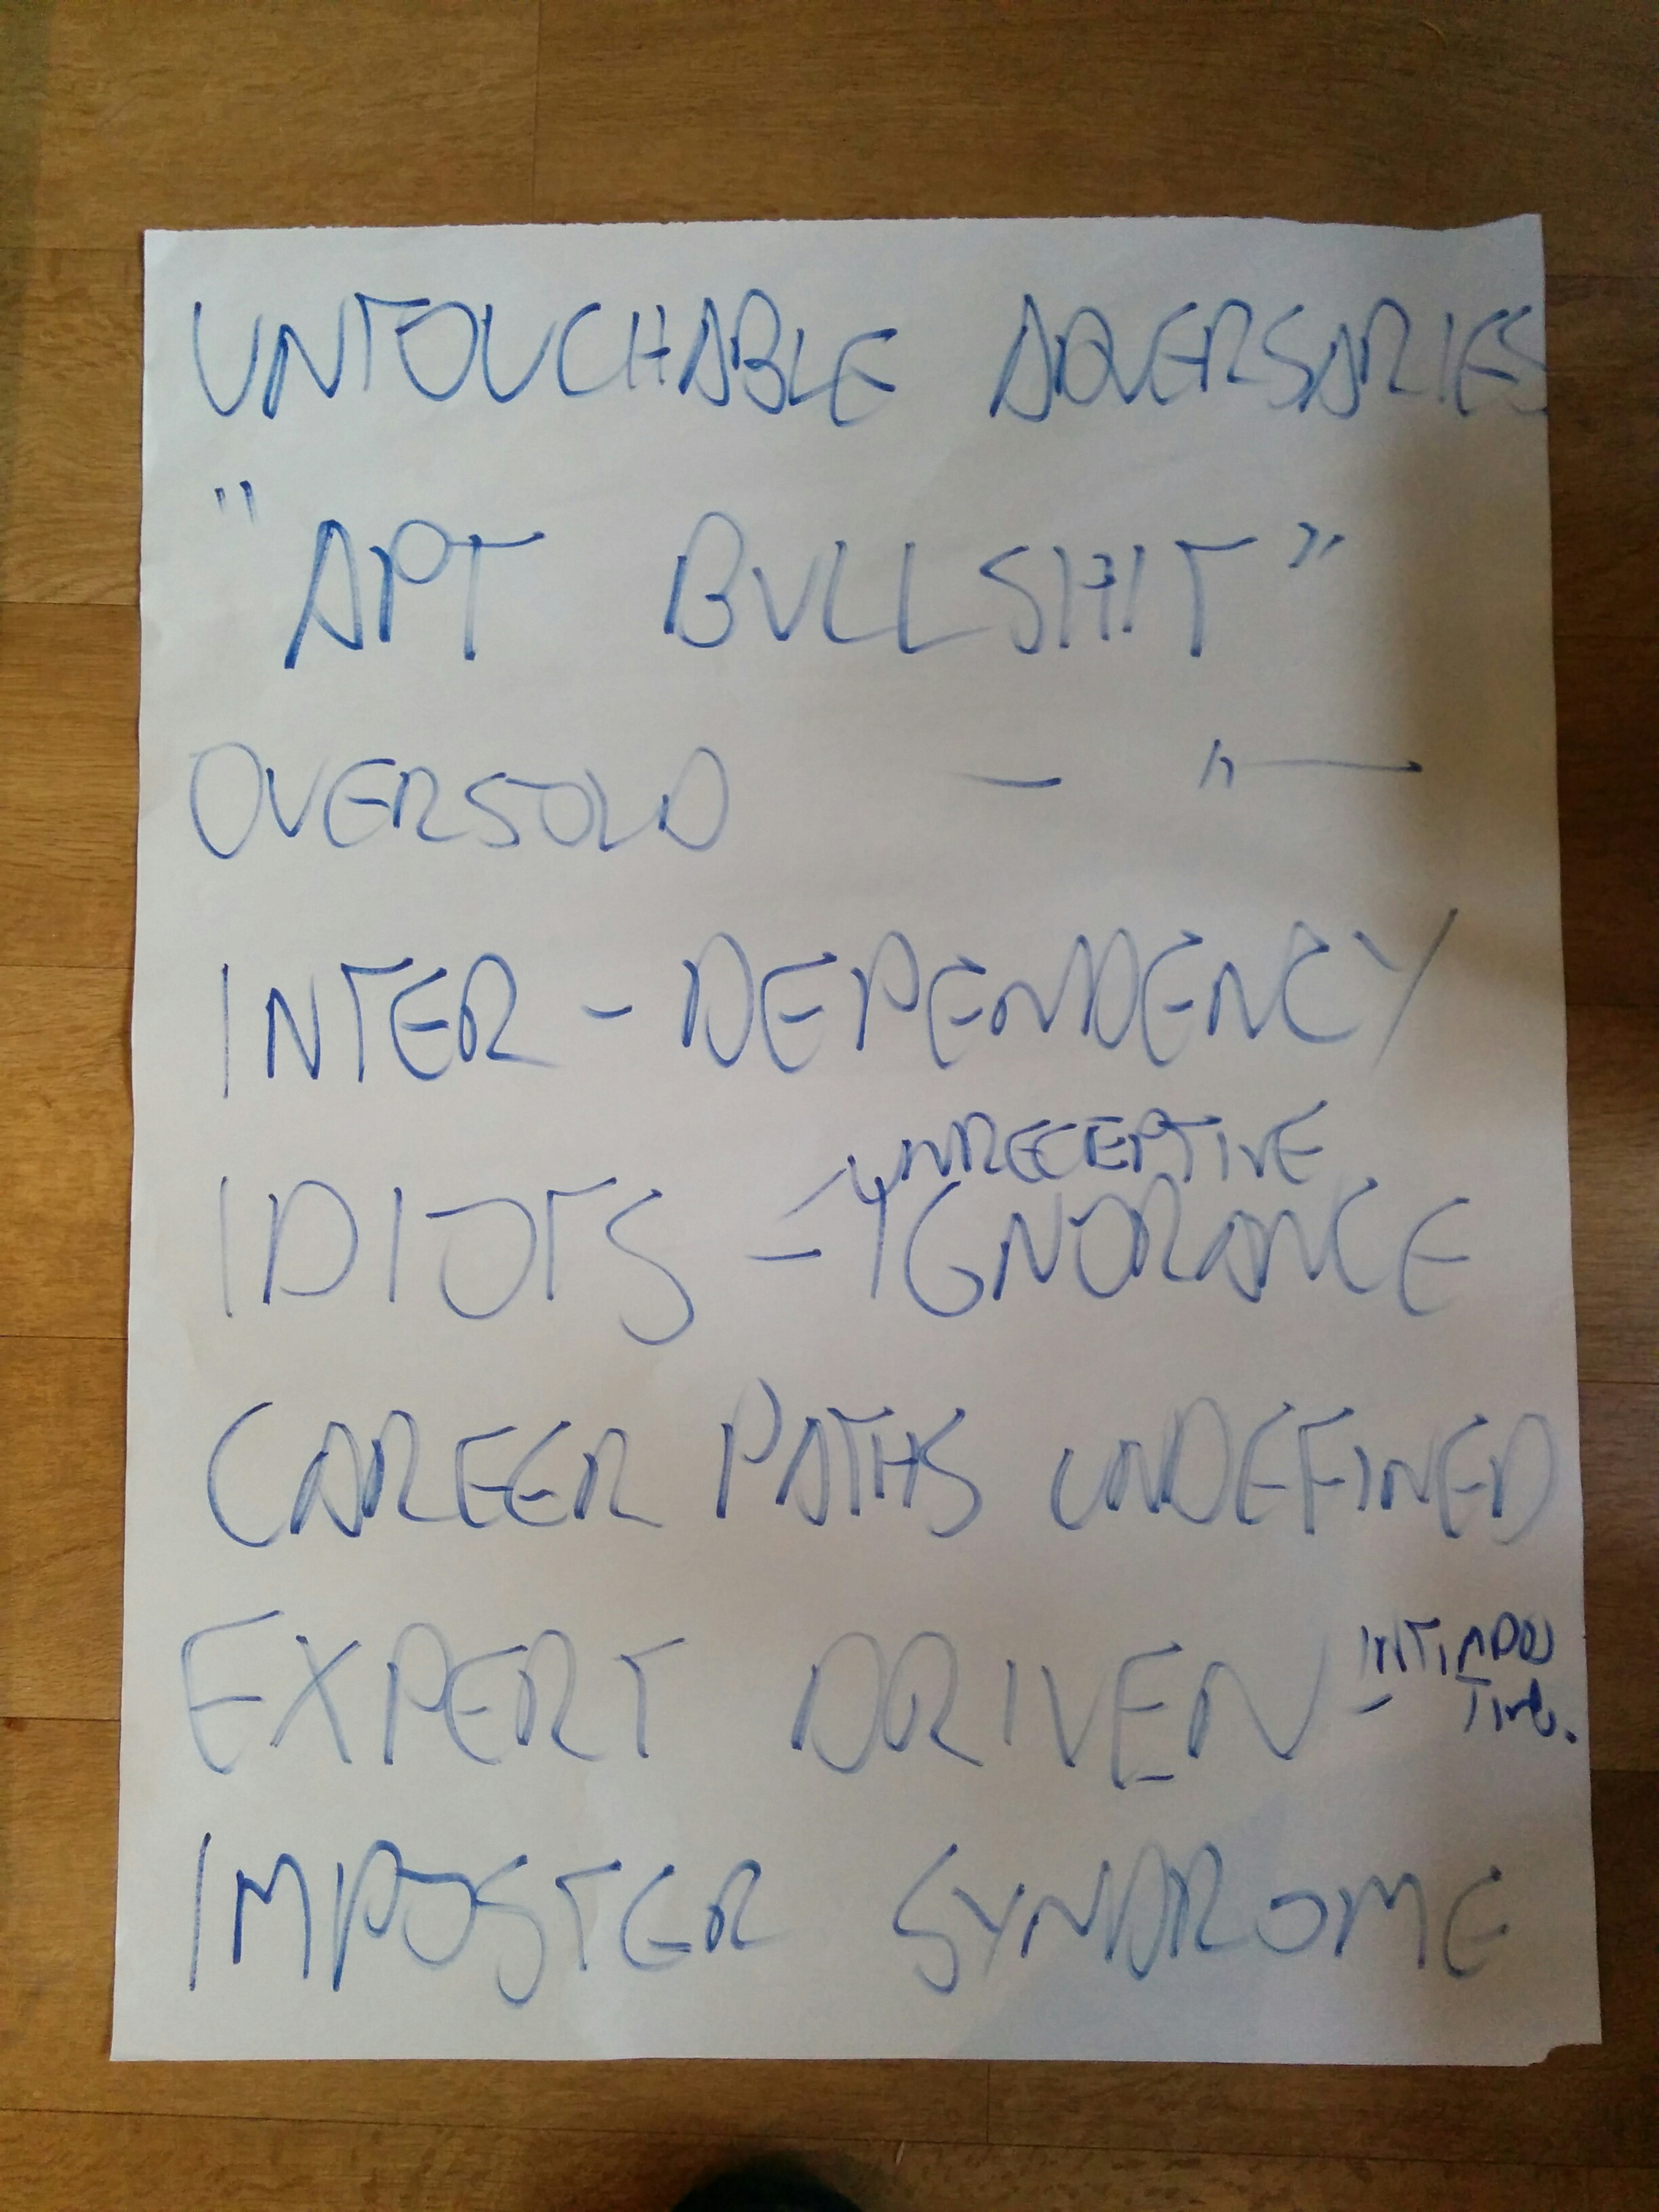 UNTOUCHABLE ADVERSARIES
"APT BULLSHIT"
OVERSOLD — " —
INTER - DEPENDENCY
UNRECEPTIVE
IDIOTS - IGNORANCE
CAREER PATHS UNDEFINED
EXPERT DRIVEN -
IMPOSTER SYNDROME